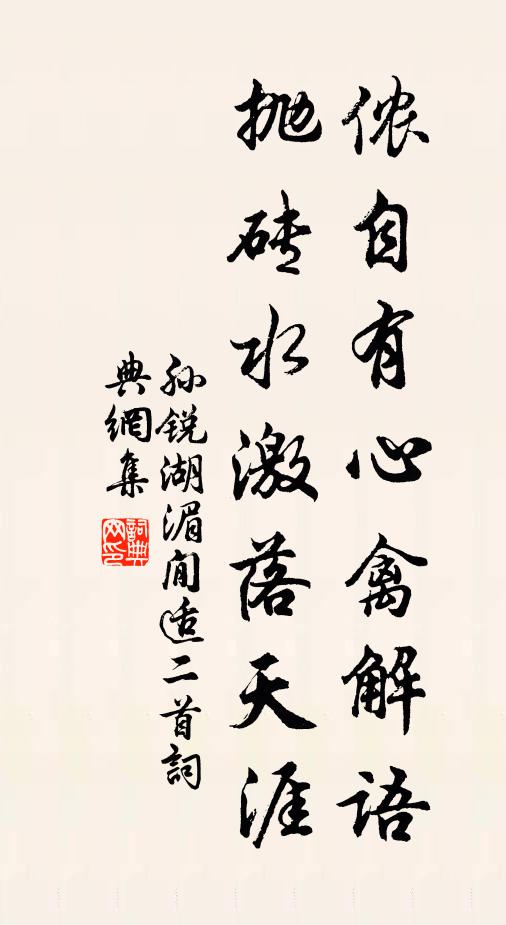 侬自有心禽解语
抛砖水激落天涯
孙锐湖湄闲适二首詞
典網集
詞典网印